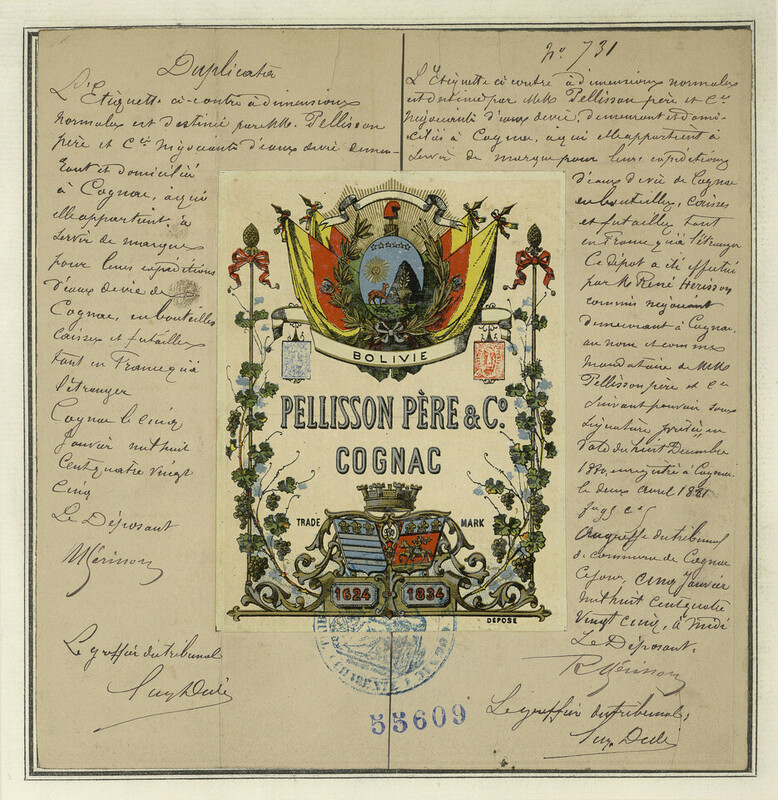 Duplicata
L'Etiquette ci-contre à dimensions
normales est destinée par MM. Pellisson
père et Cie négociants d'eaux de vie demeu-
rant et domiciliés
à Cognac, à qui
elle appartient, à
servir de marque
pour leurs expéditions
d'eaux de vie de
Cognac, en bouteilles
caisses et futailles
tant en France qu'à
l'étranger
Cognac le cinq
Janvier mil huit
cent quatre vingt
cinq
Le Déposant
RHérisson
Le greffier du tribunal
No 731
L'Etiquette ci-contre à dimensions normales
est destinée par MM. Pellisson père et Cie
négociants d'eaux de vie, demeurant et domi-
ciliés à Cognac, à qui elle appartient à
servir de marque pour leurs expéditions
d'eaux de vie de Cognac
en bouteilles, caisses
et futailles tant
en France qu'à l'étranger
Ce dépot a été effectué
par M. René Hérisson
commis négociant
demeurant à Cognac.
au nom et comme
mandataire de MM.
Pellisson père et Cie
suivant pouvoir sous
signature privée, en
date du huit Décembre
1880, enregistré à Cognac
le deux avril 1881
Au greffe du tribunal
de commerce de Cognac
Ce jour, cinq Janvier
mil huit cent quatre
vingt cinq, à midi
Le Déposant,
RHérisson
Le greffier du tribunal,
BOLIVIE
PELLISSON PÈRE & Co.
COGNAC
TRADE MARK
1624 1834
DÉPOSÉ
55609